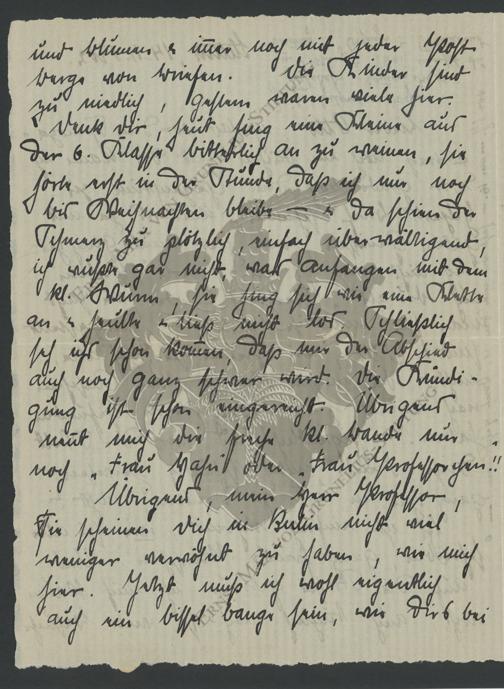 und blumen & im̅er noch mit jeder Post
berge von briefen. Die Kinder sind
zu niedlich, gestern waren viele hier.
Denk dir, heut fing eine Kleine aus
der 6. Klasse bitterlich an zu weinen, sie
hörte erst in der Stunde, daß ich nur noch
bis Weihnachten bleibe — & da schien der
Schmerz zu plötzlich, einfach überwältigend,
ich wußte gar nicht was anfangen mit dem
kl. Wurm, sie hing sich wie eine Klette
an & heulte & ließ nicht los. Schließlich
seh ich's schon kom̅en, daß mir der Abschied
auch noch ganz schwer wird. Die Kündi-
gung ist schon eingereicht. Übrigens
nen̅t mich die freche kl. bande nur
noch „Frau " oder „Frau Professorchen!!
Übrigens, mein Herr Professor,
Sie scheinen Dich in nicht viel
weniger verwöhnt zu haben, wie mich
hier. Jetzt muß ich wohl eigentlich
auch ein bissel bange sein, wie Dir's bei